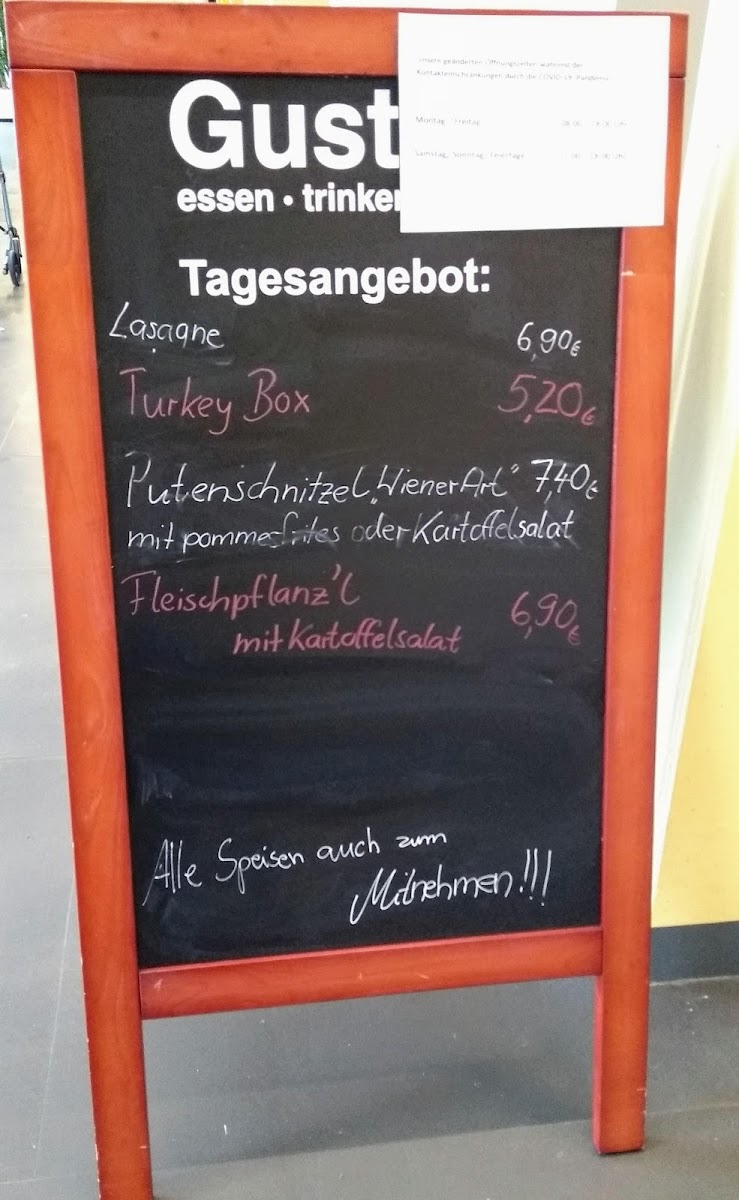 Unsere geänderten Öffnungszeiten während der
Kontakteinschränkungen durch die COVID-19-Pandemie
Montag - Freitag
Samstag, Sonntag, Feiertage
Gust
essen • trinken
Tagesangebot:
Lasagne 6,90€
Turkey Box 5,20€
Putenschnitzel „Wiener Art" 7,40€
mit pommesfrites oder Kartoffelsalat
Fleischpflanz'l 6,90€
mit Kartoffelsalat
Alle Speisen auch zum
Mitnehmen!!!